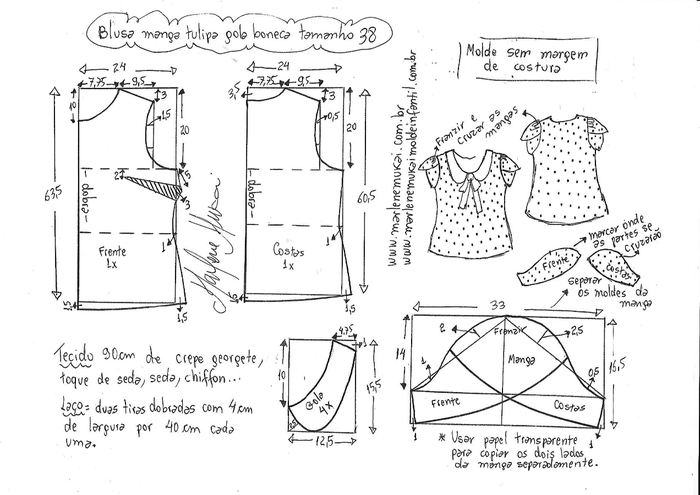 Blusa manga tulipa gola boneca tamanho 38
Molde sem margem
de costura
24
7,75
9,5
10
3
1,5
20
63,5
-dobra-
2
5
3
1
Frente
1x
1,5
1,5
24
3,5
7,75
9,5
3
0,5
20
60,5
-dobra-
1
Costas
1x
1,5
Marlene Mukai
www.marlenemukai.com.br
www.marlenemukaimoldeinfantil.com.br
Franzir e
cruzar as
mangas
marcar onde
as partes se
cruzarão
Frente
Costas
separar
os moldes da
manga
33
14
2
Franzir
2,5
Manga
16,5
1
0,5
Frente
Costas
1
1
* Usar papel transparente
para copiar os dois lados
da manga separadamente.
4,75
1
10
Gola
4x
15,5
12,5
Tecido 90cm de crepe georgete,
toque de seda, seda, chiffon...
Laço = duas tiras dobradas com 4cm
de largura por 40cm cada
uma.